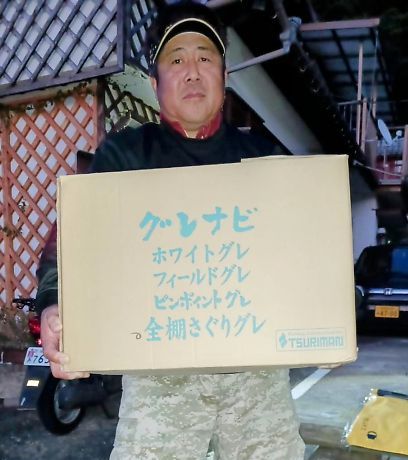 グレナビ
ホワイトグレ
フィールドグレ
ピンポイントグレ
全棚さぐりグレ
TSURIMAN